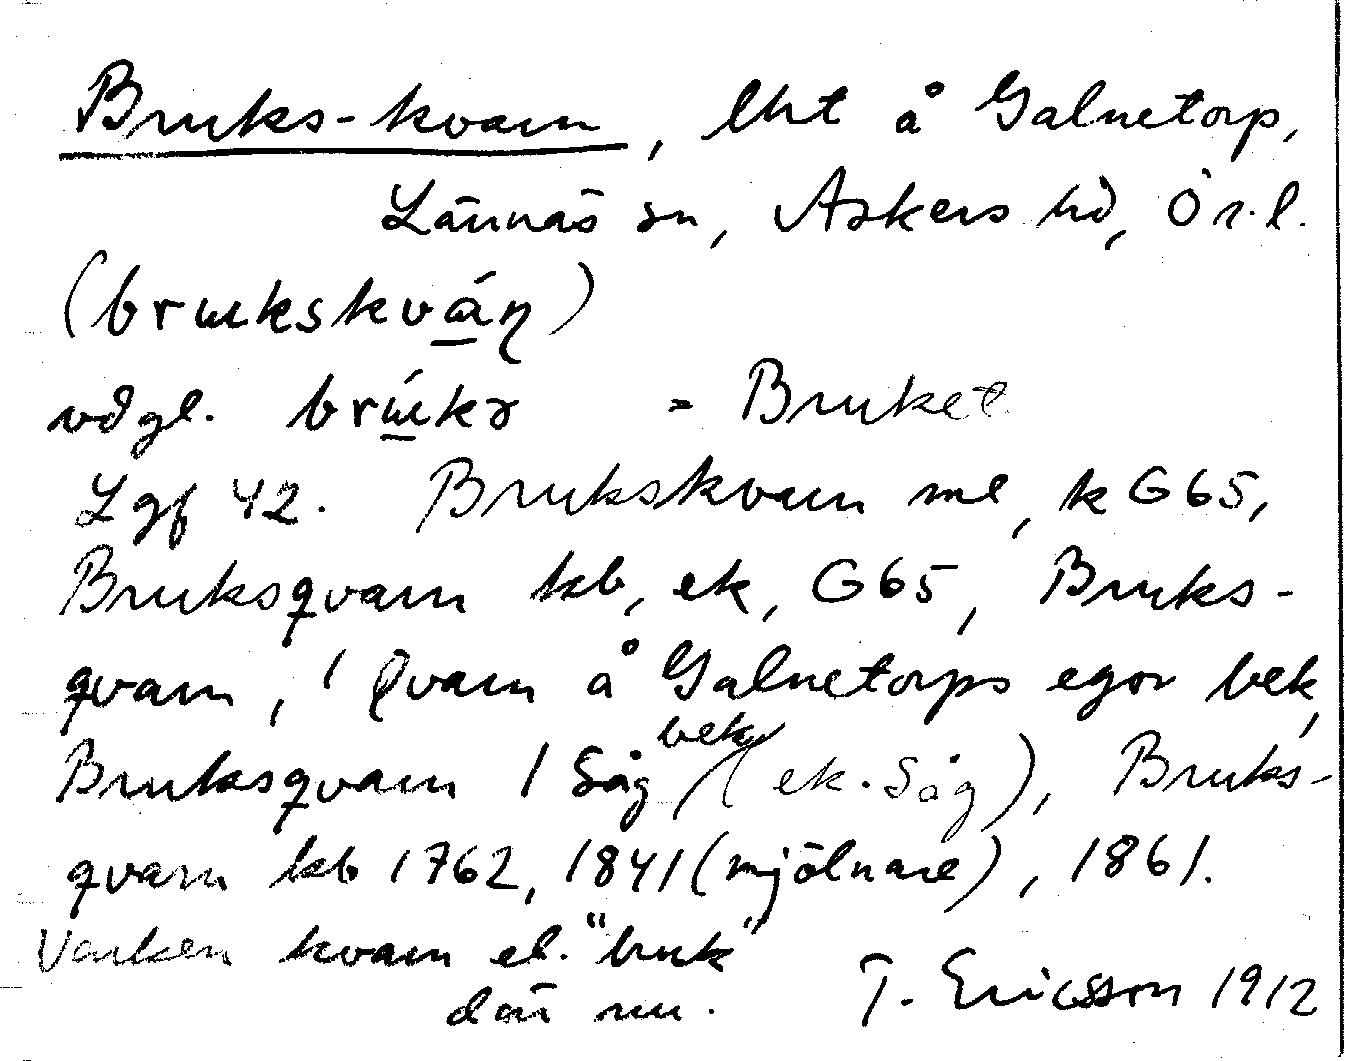 Bruks-kvarn, lht å Galnetorp,
Lännäs sn, Askers hd, Ör. l.
(brukskvá̱ɳ)
vdgl. brú̱kə = Bruket
Lgf 42. Brukskvarn me, k G65,
Bruksqvarn kb, ek, G65, Bruks-
qvarn, 1 Qvarn å Galnetorps egor bek,
Bruksqvarn 1 Såg bek (ek. Såg), Bruks-
qvarn kb 1762, 1841 (mjölnare), 1861.
Varken kvarn el. "bruk"
där nu. T. Ericsson 1912